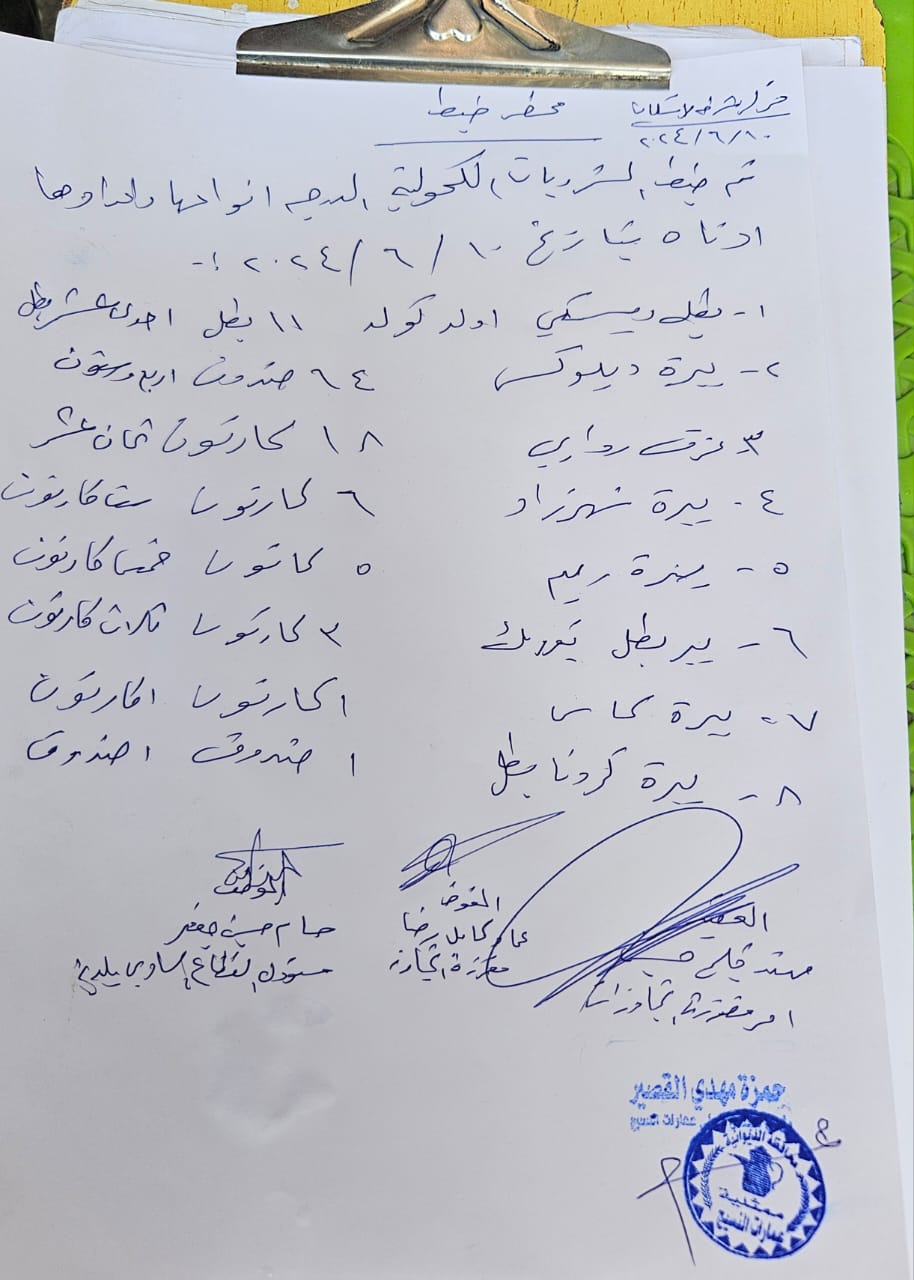 محظر ضبط
٢٠٢٤/٦/١٠
تم ضبط المشروبات الكحولية المدرجه انواعها واعدادها
ادناه بتاريخ ١٠ / ٦ / ٢٠٢٤ :-
١- بطل ويسكي اولد كولد ١١ بطل احدى عشر بطل
٢- بيرة ديلوكس ٦٤ صندوق اربع وستون
٣- عرق رواري ١٨ كارتون ثمان عشر
٤- بيرة شهرزاد ٦ كارتون ست كارتون
٥- بيرة ريم ٥ كاتون خمس كارتون
٦- بير بطل ٣ كارتون ثلاث كارتون
٧- بيرة كاس ١ كارتون ١ كارتون
٨- بيرة كرونا بطل ١ صندوق ١ صندوق
العقيد
امر مفرزة التجاوزات
المفوض
عماد كامل رضا
مفرزة التجاوز
حسام حسين جعفر
مسؤول القطاع بلدية
حمزة مهدي القصير
عمارات النسيج
محافظة الديوانية
معتمدية
عمارات النسيج